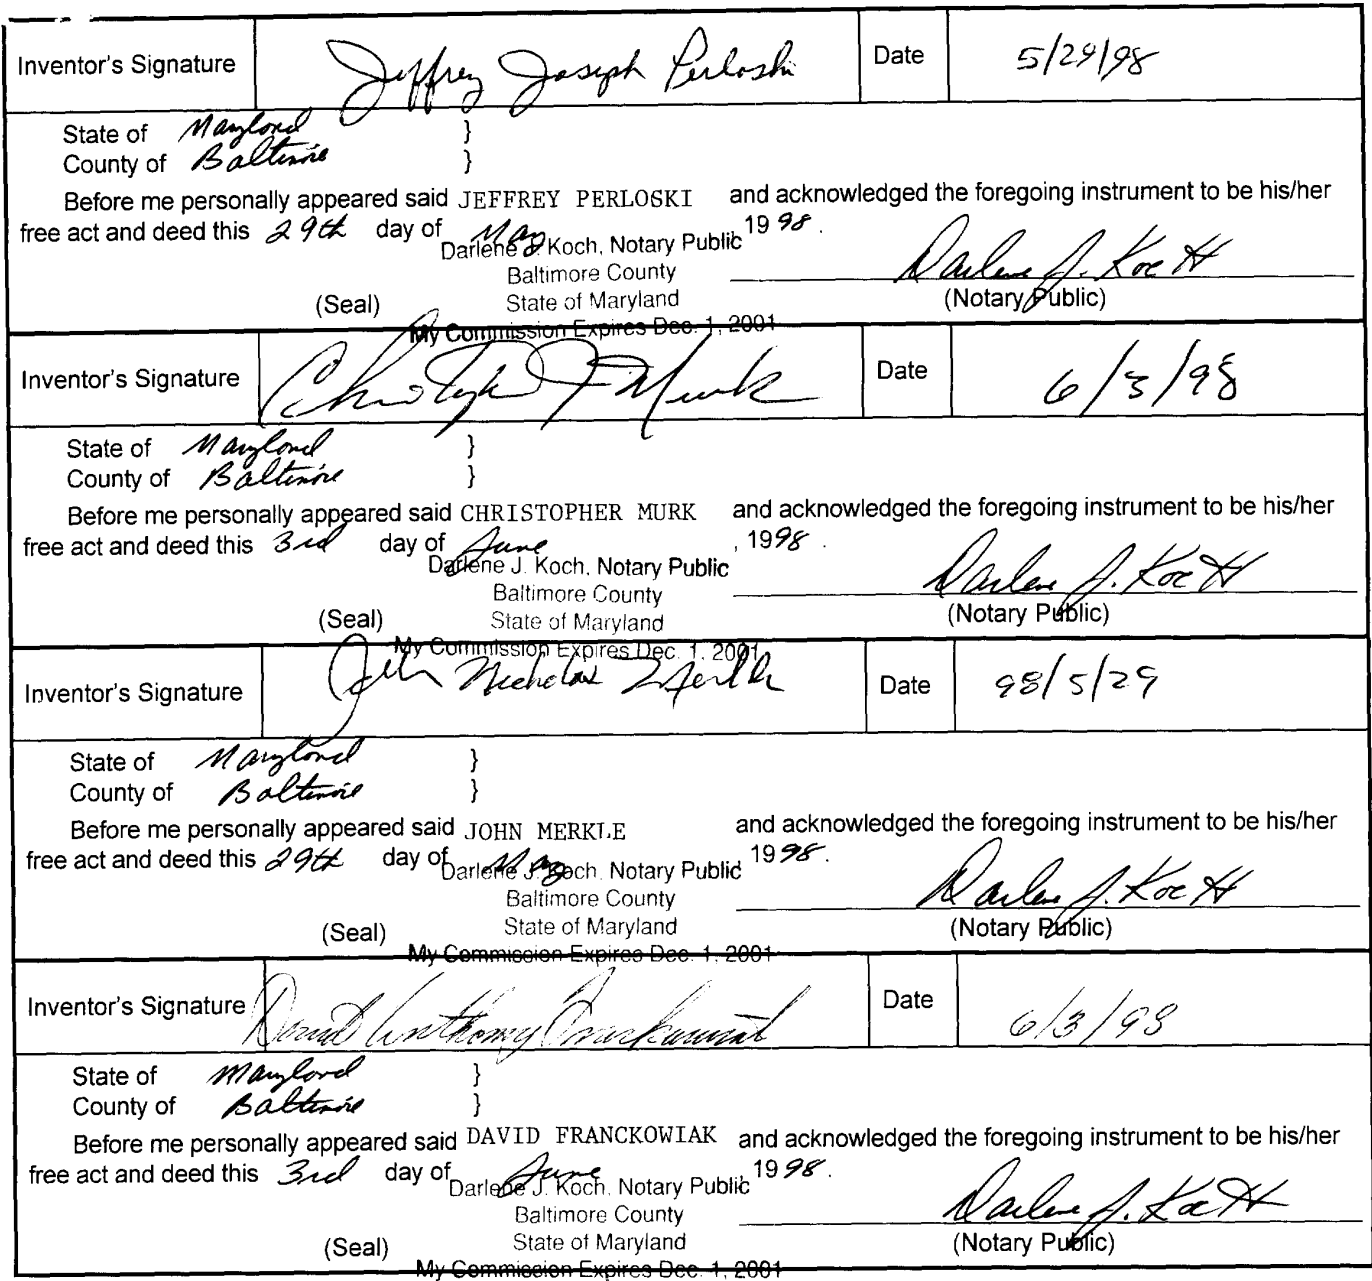 Inventor's Signature Jeffrey Joseph Perloski Date 5/29/98
State of Maryland }
County of Baltimore }
Before me personally appeared said JEFFREY PERLOSKI and acknowledged the foregoing instrument to be his/her
free act and deed this 29th day of May 1998.
Darlene J. Koch, Notary Public
Baltimore County Darlene J. Koch
(Seal) State of Maryland (Notary Public)
My Commission Expires Dec. 1, 2001
Inventor's Signature Christopher J Murk Date 6/3/98
State of Maryland }
County of Baltimore }
Before me personally appeared said CHRISTOPHER MURK and acknowledged the foregoing instrument to be his/her
free act and deed this 3rd day of June, 1998.
Darlene J. Koch, Notary Public
Baltimore County Darlene J. Koch
(Seal) State of Maryland (Notary Public)
My Commission Expires Dec. 1, 2001
Inventor's Signature John Nicholas Merkle Date 98/5/29
State of Maryland }
County of Baltimore }
Before me personally appeared said JOHN MERKLE and acknowledged the foregoing instrument to be his/her
free act and deed this 29th day of May 1998.
Darlene J. Koch, Notary Public
Baltimore County Darlene J. Koch
(Seal) State of Maryland (Notary Public)
My Commission Expires Dec. 1, 2001
Inventor's Signature David Anthony Franckowiak Date 6/3/98
State of Maryland }
County of Baltimore }
Before me personally appeared said DAVID FRANCKOWIAK and acknowledged the foregoing instrument to be his/her
free act and deed this 3rd day of June, 1998.
Darlene J. Koch, Notary Public
Baltimore County Darlene J. Koch
(Seal) State of Maryland (Notary Public)
My Commission Expires Dec. 1, 2001